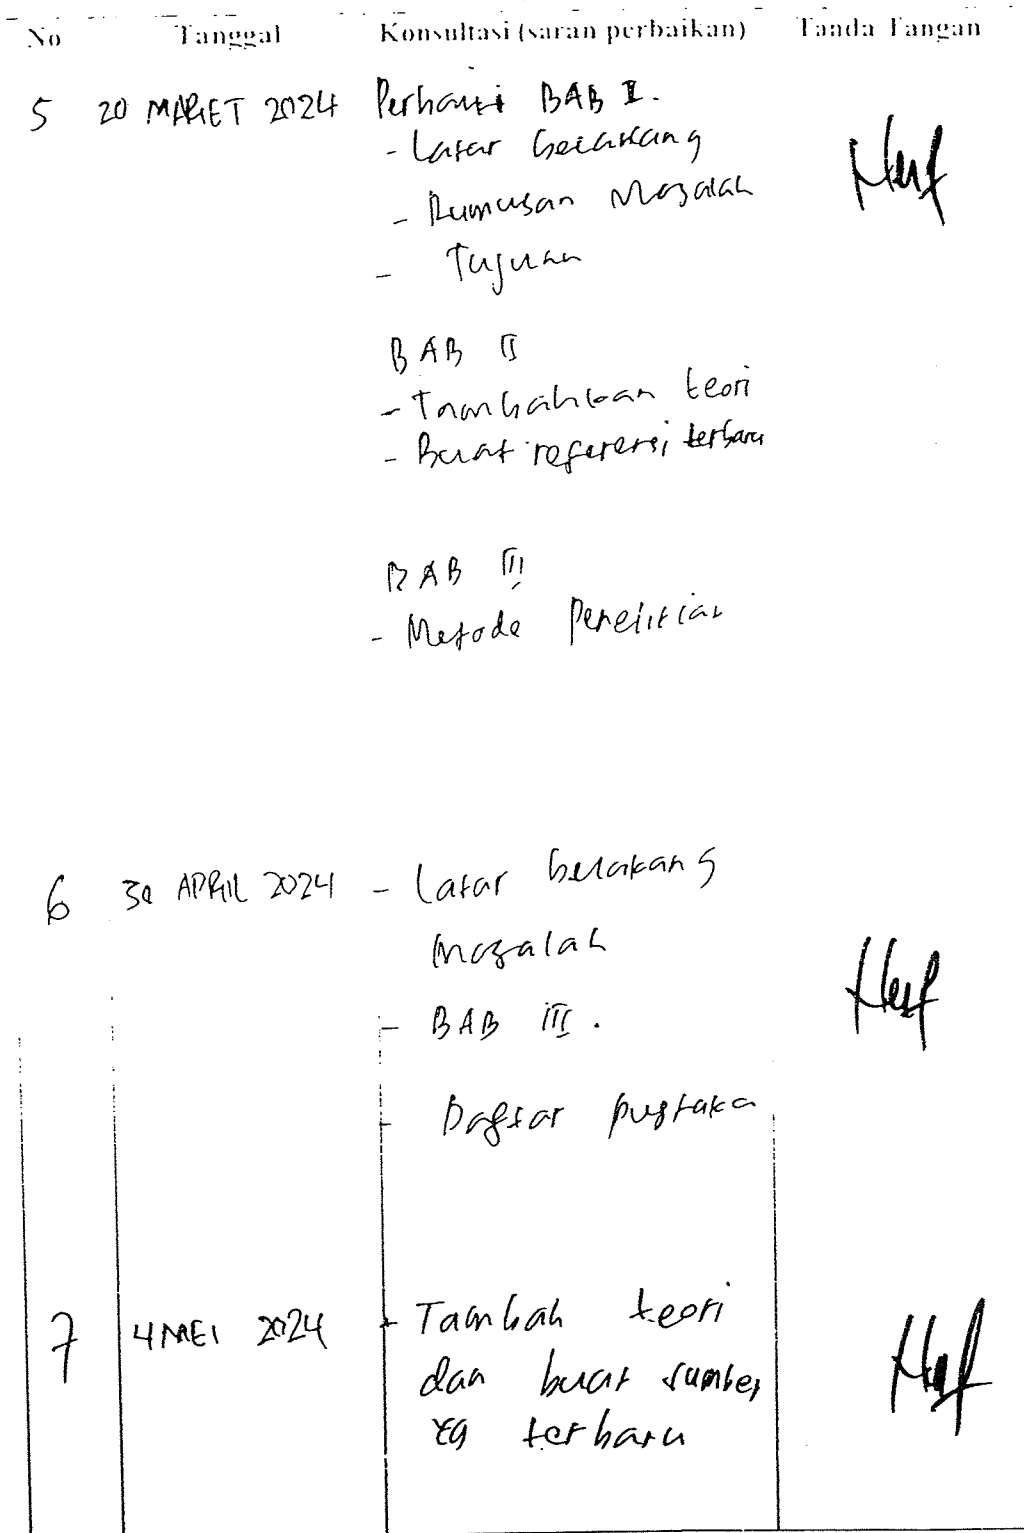 No Tanggal Konsultasi (saran perbaikan) Tanda Tangan
5 20 MARET 2024 Perbaiki BAB I.
- Latar belakang
- Rumusan Masalah
- Tujuan
BAB II
- Tambahkan teori
- Buat referensi terbaru
BAB III
- Metode Penelitian
6 30 APRIL 2024 - Latar belakang
Masalah
- BAB III.
- Daftar pustaka
7 4 MEI 2024 - Tambah teori
dan buat sumber
yg terbaru